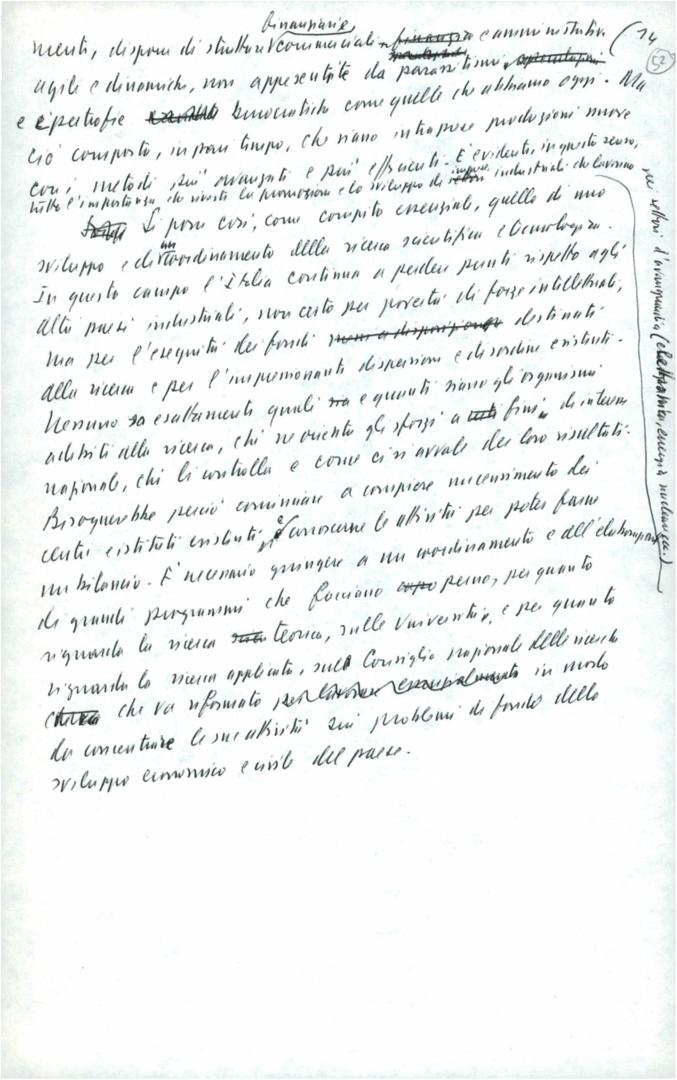 finanziarie
menti, dispone di strutture commerciali finanzia e amministrative (14
52
agili e dinamiche, non appesantite da parassitismi, speculazioni
e ipertrofie burocratiche come quelle che abbiamo oggi. Ma
ciò comporta, in pari tempo, che siano intraprese produzioni nuove
con metodi più avanzati e più efficienti. È evidente, in questo senso,
tutta l'importanza che riveste la promozione e lo sviluppo di settori imprese industriali che lavorino
nei settori d'avanguardia (elettronica, energia nucleare ecc.)
Si pone così, come compito essenziale, quello di uno
sviluppo e di un coordinamento della ricerca scientifica e tecnologica.
In questo campo l'Italia continua a perdere punti rispetto agli
altri paesi industriali, non certo per povertà di forze intellettuali,
ma per l'esiguità dei fondi messi a disposizione destinati
alla ricerca e per l'impressionante dispersione e disordine esistenti.
Nessuno sa esattamente quali sia e quanti siano gli organismi
adibiti alla ricerca, chi ne orienta gli sforzi a tutti fini di interesse
nazionale, chi li controlla e come ci si avvale dei loro risultati.
Bisognerebbe perciò cominciare a compiere un censimento dei
centri e istituti esistenti, e conoscerne le attività per poter farne
un bilancio. È necessario giungere a un coordinamento e all'elaborazione
di grandi programmi che facciano capo perno, per quanto
riguarda la ricerca teorica, sulle Università, e per quanto
riguarda la ricerca applicata, sul Consiglio nazionale delle ricerche
che va riformato per lavorare essenzialmente in modo
da concentrare le sue attività sui problemi di fondo dello
sviluppo economico e civile del paese.